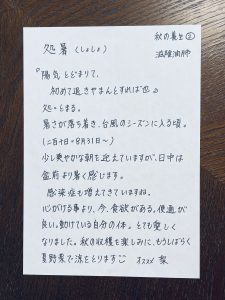 秋の養生②
滋陰油肺
処暑(しょしょ)
『陽気とどまりて、
初めて退きやまんとすれば也』
処=とまる。
暑さが落ち着き、台風のシーズンに入る頃。
(二百十日=8月31日〜)
少し爽やかな朝を迎えていますが、日中は
盆前より暑く感じます。
感染症も増えてきていますね。
心がける事より、今、食欲がある。便通が
良い。動けている自分の体。とても愛しく
なりました。秋の収穫を楽しみに、もうしばらく
夏野菜で涼をとります☺ オススメ 梨